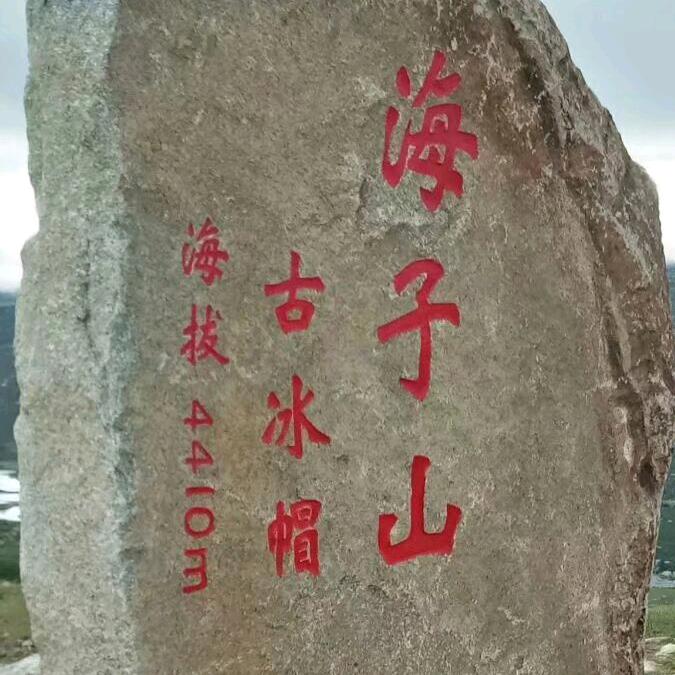 海子山
古冰帽
海拔 4410m